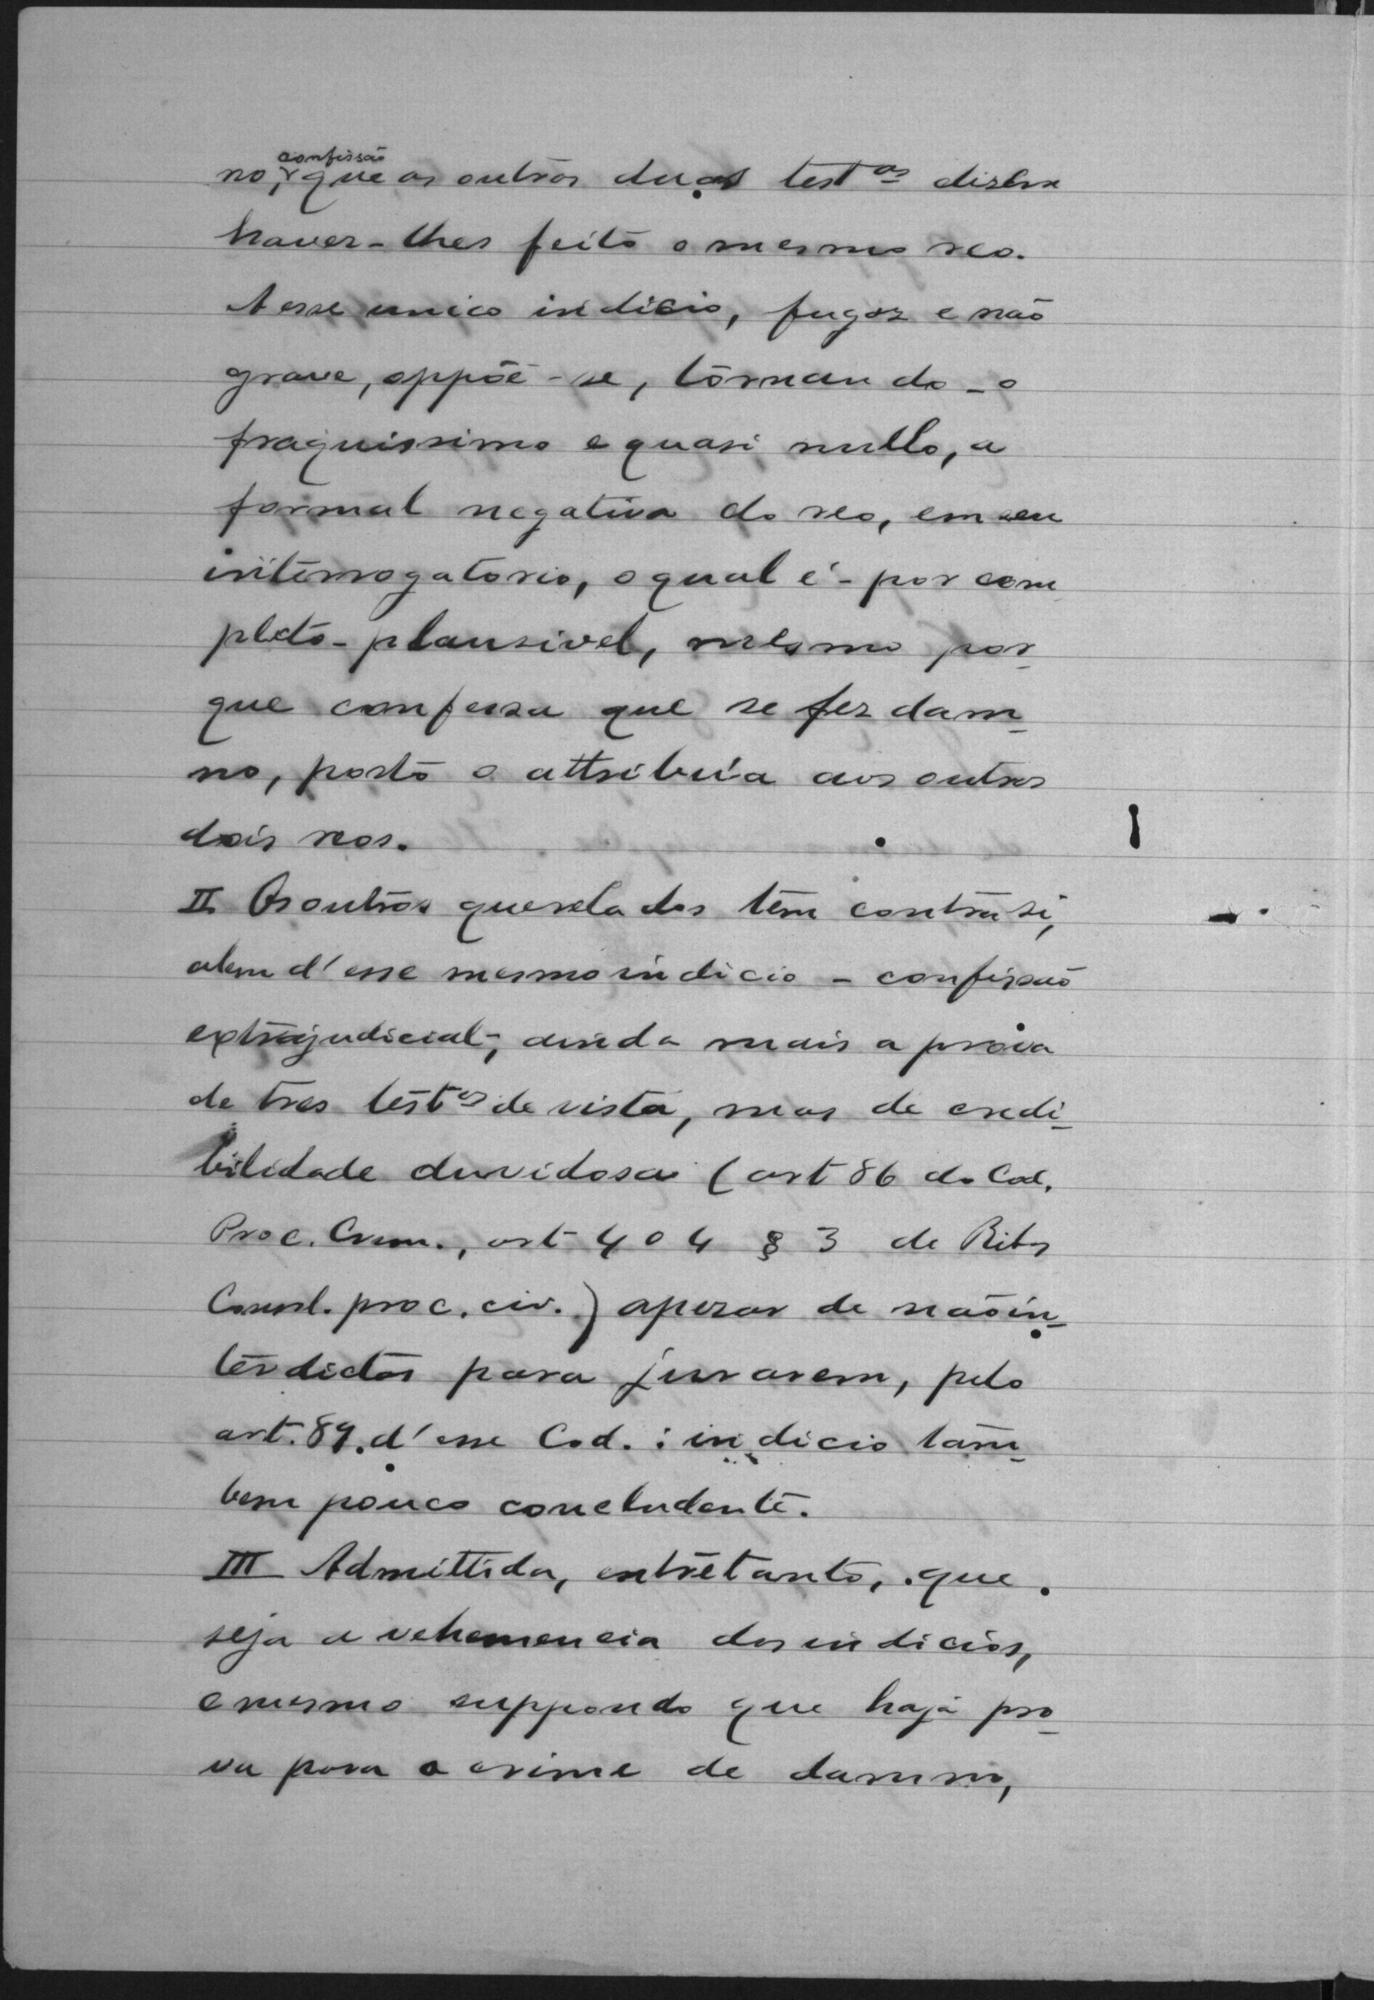 no, confissão que as outras duas test.as dizem
haver-lhes feito o mesmo reo.
A esse unico indicio, fugaz e não
grave, oppõe-se, tornando-o
fraquissimo e quasi nullo, a
formal negativa do reo, em seu
interrogatorio, o qual é - por com
pleto - plausivel, mesmo por-
que confessa que se fez dam-
no, posto o attribúa aos outros
dois reos.
II Os outros querelados têm contra si,
alem d'esse mesmo indicio - confissão
extrajudicial -, ainda mais a prova
de tres test.as de vista, mas de credi-
bilidade duvidosa (art 86 do Cod.
Proc. Crim., art 404 § 3 de Ribas
Consol. proc. civ.) apezar de não in-
terdictas para jurarem, pelo
art. 89. d'esse Cod. : indicio tam-
bem pouco concludente.
III Admittida, entretanto, que
seja a vehemencia dos indicios,
e mesmo suppondo que haja pro-
va para o crime de damno,